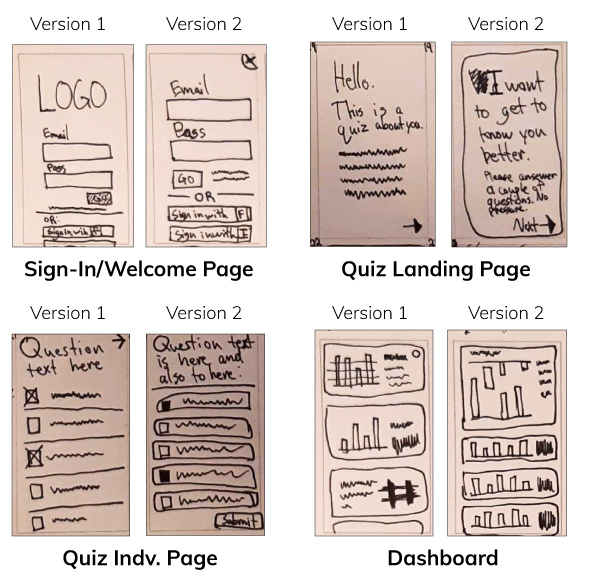 Version 1
Version 2
LOGO
Email
Pass
GO
OR:
Sign in with F
X
Email
Pass
GO
OR
Sign in with F
Sign in with I
Sign-In/Welcome Page
Version 1
Version 2
Hello.
This is a
quiz about you.
I want
to get to
know you
better.
Please answer
a couple of
questions. No
pressure.
Next
Quiz Landing Page
Version 1
Version 2
Question
text here
Question text
is here, and
also to here:
Submit
Quiz Indv. Page
Version 1
Version 2
Dashboard